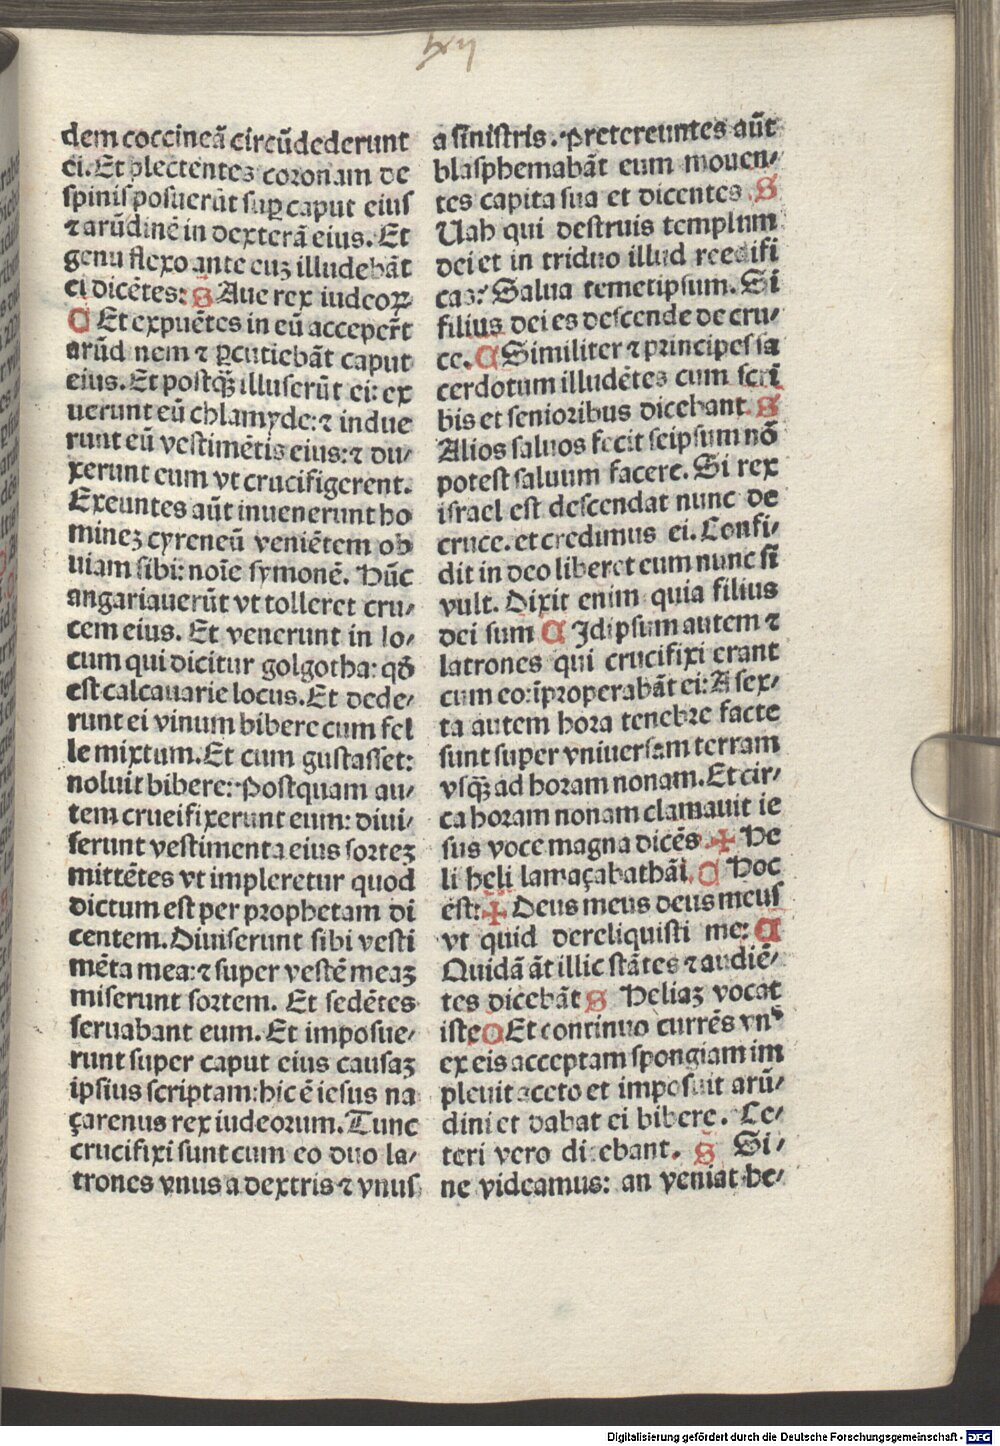 lxvij
dem coccineã circũdederunt
ei. Et plectentes coronam de
spinis posuerũt suꝑ caput eius
⁊ arũdinẽ in dexterã eius. Et
genu flexo ante euꝫ illudebãt
ei dicẽtes: S Aue rex iudeoꝝ
C Et expuẽtes in eũ acceper̃t
arũdinem ⁊ ꝑcutiebãt caput
eius. Et postq̃ illuserũt ei: ex
uerunt eũ chlamyde: ⁊ indue
runt eũ vestimẽtis eius: ⁊ du⸗
xerunt eum vt crucifigerent.
Exeuntes aũt inuenerunt ho
mineꝫ cyreneũ veniẽtem ob
uiam sibi: noĩe symonẽ. Hũc
angariauerũt vt tolleret cru⸗
cem eius. Et venerunt in lo⸗
cum qui dicitur golgotha: qđ
est calcauarie locus. Et dede⸗
runt ei vinum bibere cum fel
le mixtum. Et cum gustasset:
noluit bibere: Postquam au⸗
tem crueifixerunt eum: diui⸗
serunt vestimenta eius sorteꝫ
mittẽtes vt impleretur quod
dictum est per prophetam di
centem. Diuiserunt sibi vesti
mẽta mea: ⁊ super vestẽ meaꝫ
miserunt sortem. Et sedẽtes
seruabant eum. Et imposue⸗
runt super caput eius causaꝫ
ipsius scriptam: hic ẽ iesus na
çarenus rex iudeorum. Tunc
crucifixi sunt cum eo duo la⸗
trones vnus a dextris ⁊ vnus
a sinistris. Pretereuntes aũt
blasphemabãt eum mouen⸗
tes capita sua et dicentes S
Uah qui destruis templum
dei et in triduo illud reedifi
cas: Salua temetipsum. Si
filius dei es descende de cru⸗
ce. C Similiter ⁊ principes sa
cerdotum illudẽtes cum scri
bis et senioribus dicebant S
Alios saluos fecit seipsum nõ
potest saluum facere. Si rex
israel est descendat nunc de
cruce. et credimus ei. Confi⸗
dit in deo liberet eum nunc si
vult. Dixit enim quia filius
dei sum C Idipsum autem ⁊
latrones qui crucifixi erant
cum eo: ĩproperabãt ei: A sex⸗
ta autem hora tenebre facte
sunt super vniuersam terram
vsq̃ ad horam nonam. Et cir⸗
ca horam nonam clamauit ie
sus voce magna dicẽs ✠ He
li heli lamaçabathãi. C Hoc
est: ✠ Deus meus deus meus
vt quid dereliquisti me: C
Quidã ãt illic stãtes ⁊ audiẽ⸗
tes dicebãt S Heliaꝫ vocat
iste C Et continuo currẽs vnꝰ
ex eis acceptam spongiam im
pleuit aceto et imposuit arũ⸗
dini et dabat ei bibere. Ce⸗
teri vero dicebant. S Si⸗
ne videamus: an veniat he⸗
Digitalisierung gefördert durch die Deutsche Forschungsgemeinschaft - DFG